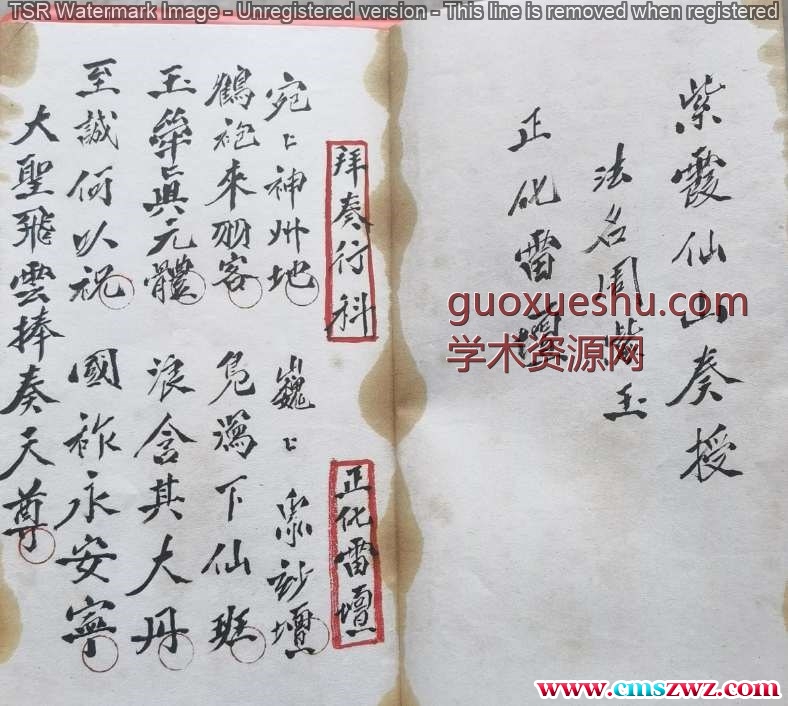 TSR Watermark Image - Unregistered version - This line is removed when registered
紫霞仙山奏授
法名周紫玉
正化雷壇
guoxueshu.com
学术资源网
拜奏行科
正化雷壇
宛〻神州地 巍〻衆妙壇
鶴袍來羽客 鳧舄下仙班
玉 眞元體 浪含其大丹
至誠何以祝 國祚永安寧
大聖飛雲捧奏天尊
www.cmszwz.com